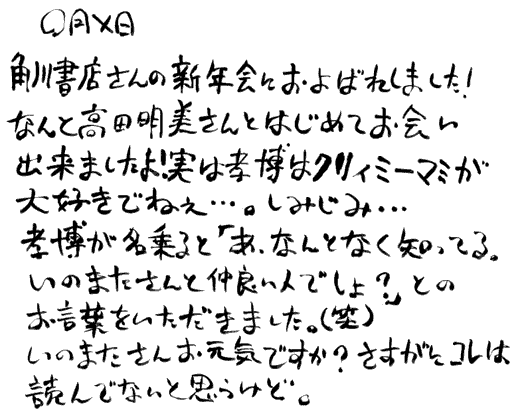 ○月×日
角川書店さんの新年会におよばれしました!
なんと高田明美さんとはじめてお会い
出来ましたよ!実は孝博はクリィミーマミが
大好きでねぇ…。しみじみ…
孝博が名乗ると「あ、なんとなく知ってる。
いのまたさんと仲良い人でしょ?」との
お言葉をいただきました。(笑)
いのまたさんお元気ですか?さすがにコレは
読んでないと思うけど。